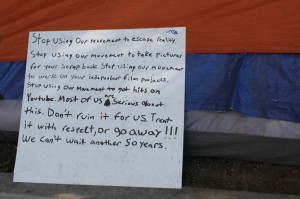 Stop using our movement to escape reality.
Stop using our movement to take pictures
for your scrap book. Stop using our movement
to work on your independent film projects.
Stop using our movement to get hits on
Youtube. Most of us are serious about
this. Don't ruin it for us. Treat
it with respect, or go away!!!
We can't wait another 50 years.